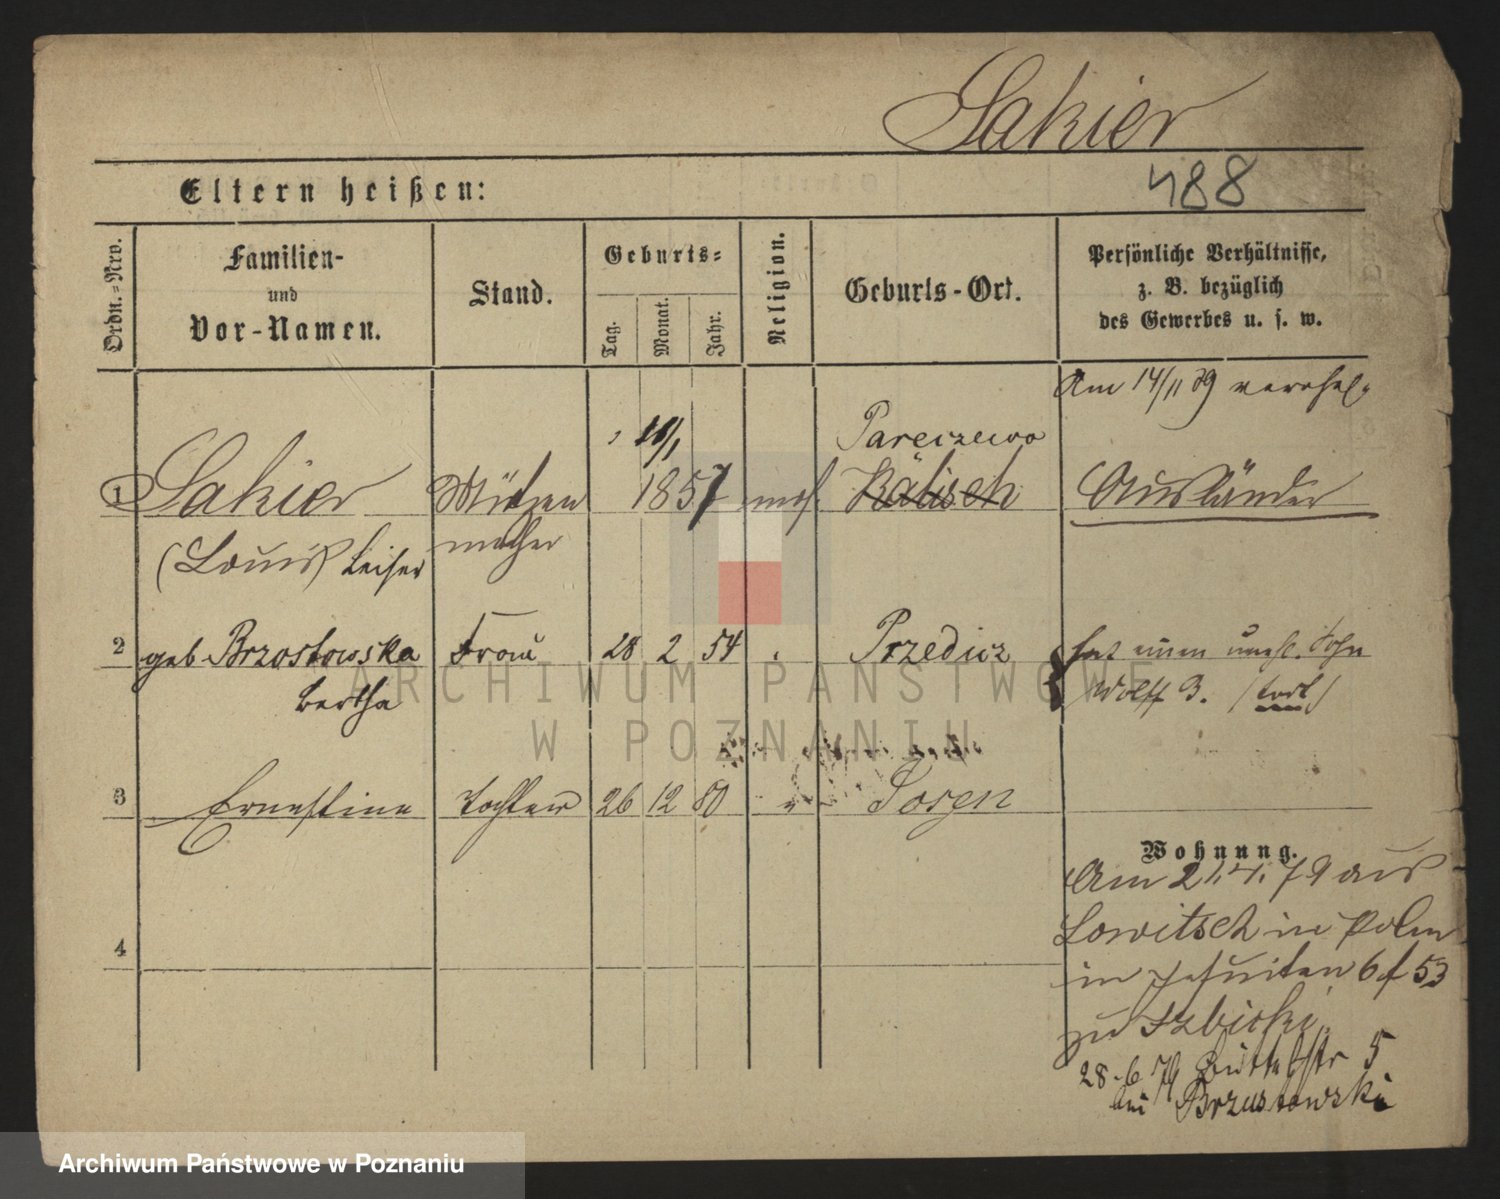 Sakier
488
Eltern heißen:
Ordn.-Nro.
Familien-
und
Vor-Namen.
Stand.
Geburts-
Tag.
Monat.
Jahr.
Religion.
Geburts-Ort.
Persönliche Verhältnisse,
z. B. bezüglich
des Gewerbes u. s. w.
Am 14/11 79 verehel.
Pareczewo
1 Sakier Mützen 1857 mos. Kalisch Ausländer
(Louis) Leiser macher
2 geb Brzostowska Frau 28 2 54 Przedicz hat einen unehl. Sohn
Bertha Wolff B. (todt)
3 Ernestine Tochter 26 12 80 " Posen
Wohnung.
Am 21.4.79 aus
Lowitsch in Polen
4
in Jesuiten
zu
28-6 79 Büttelstr 5
bei Brzustowski
ARCHIWUM PAŃSTWOWE
W POZNANIU
Archiwum Państwowe w Poznaniu